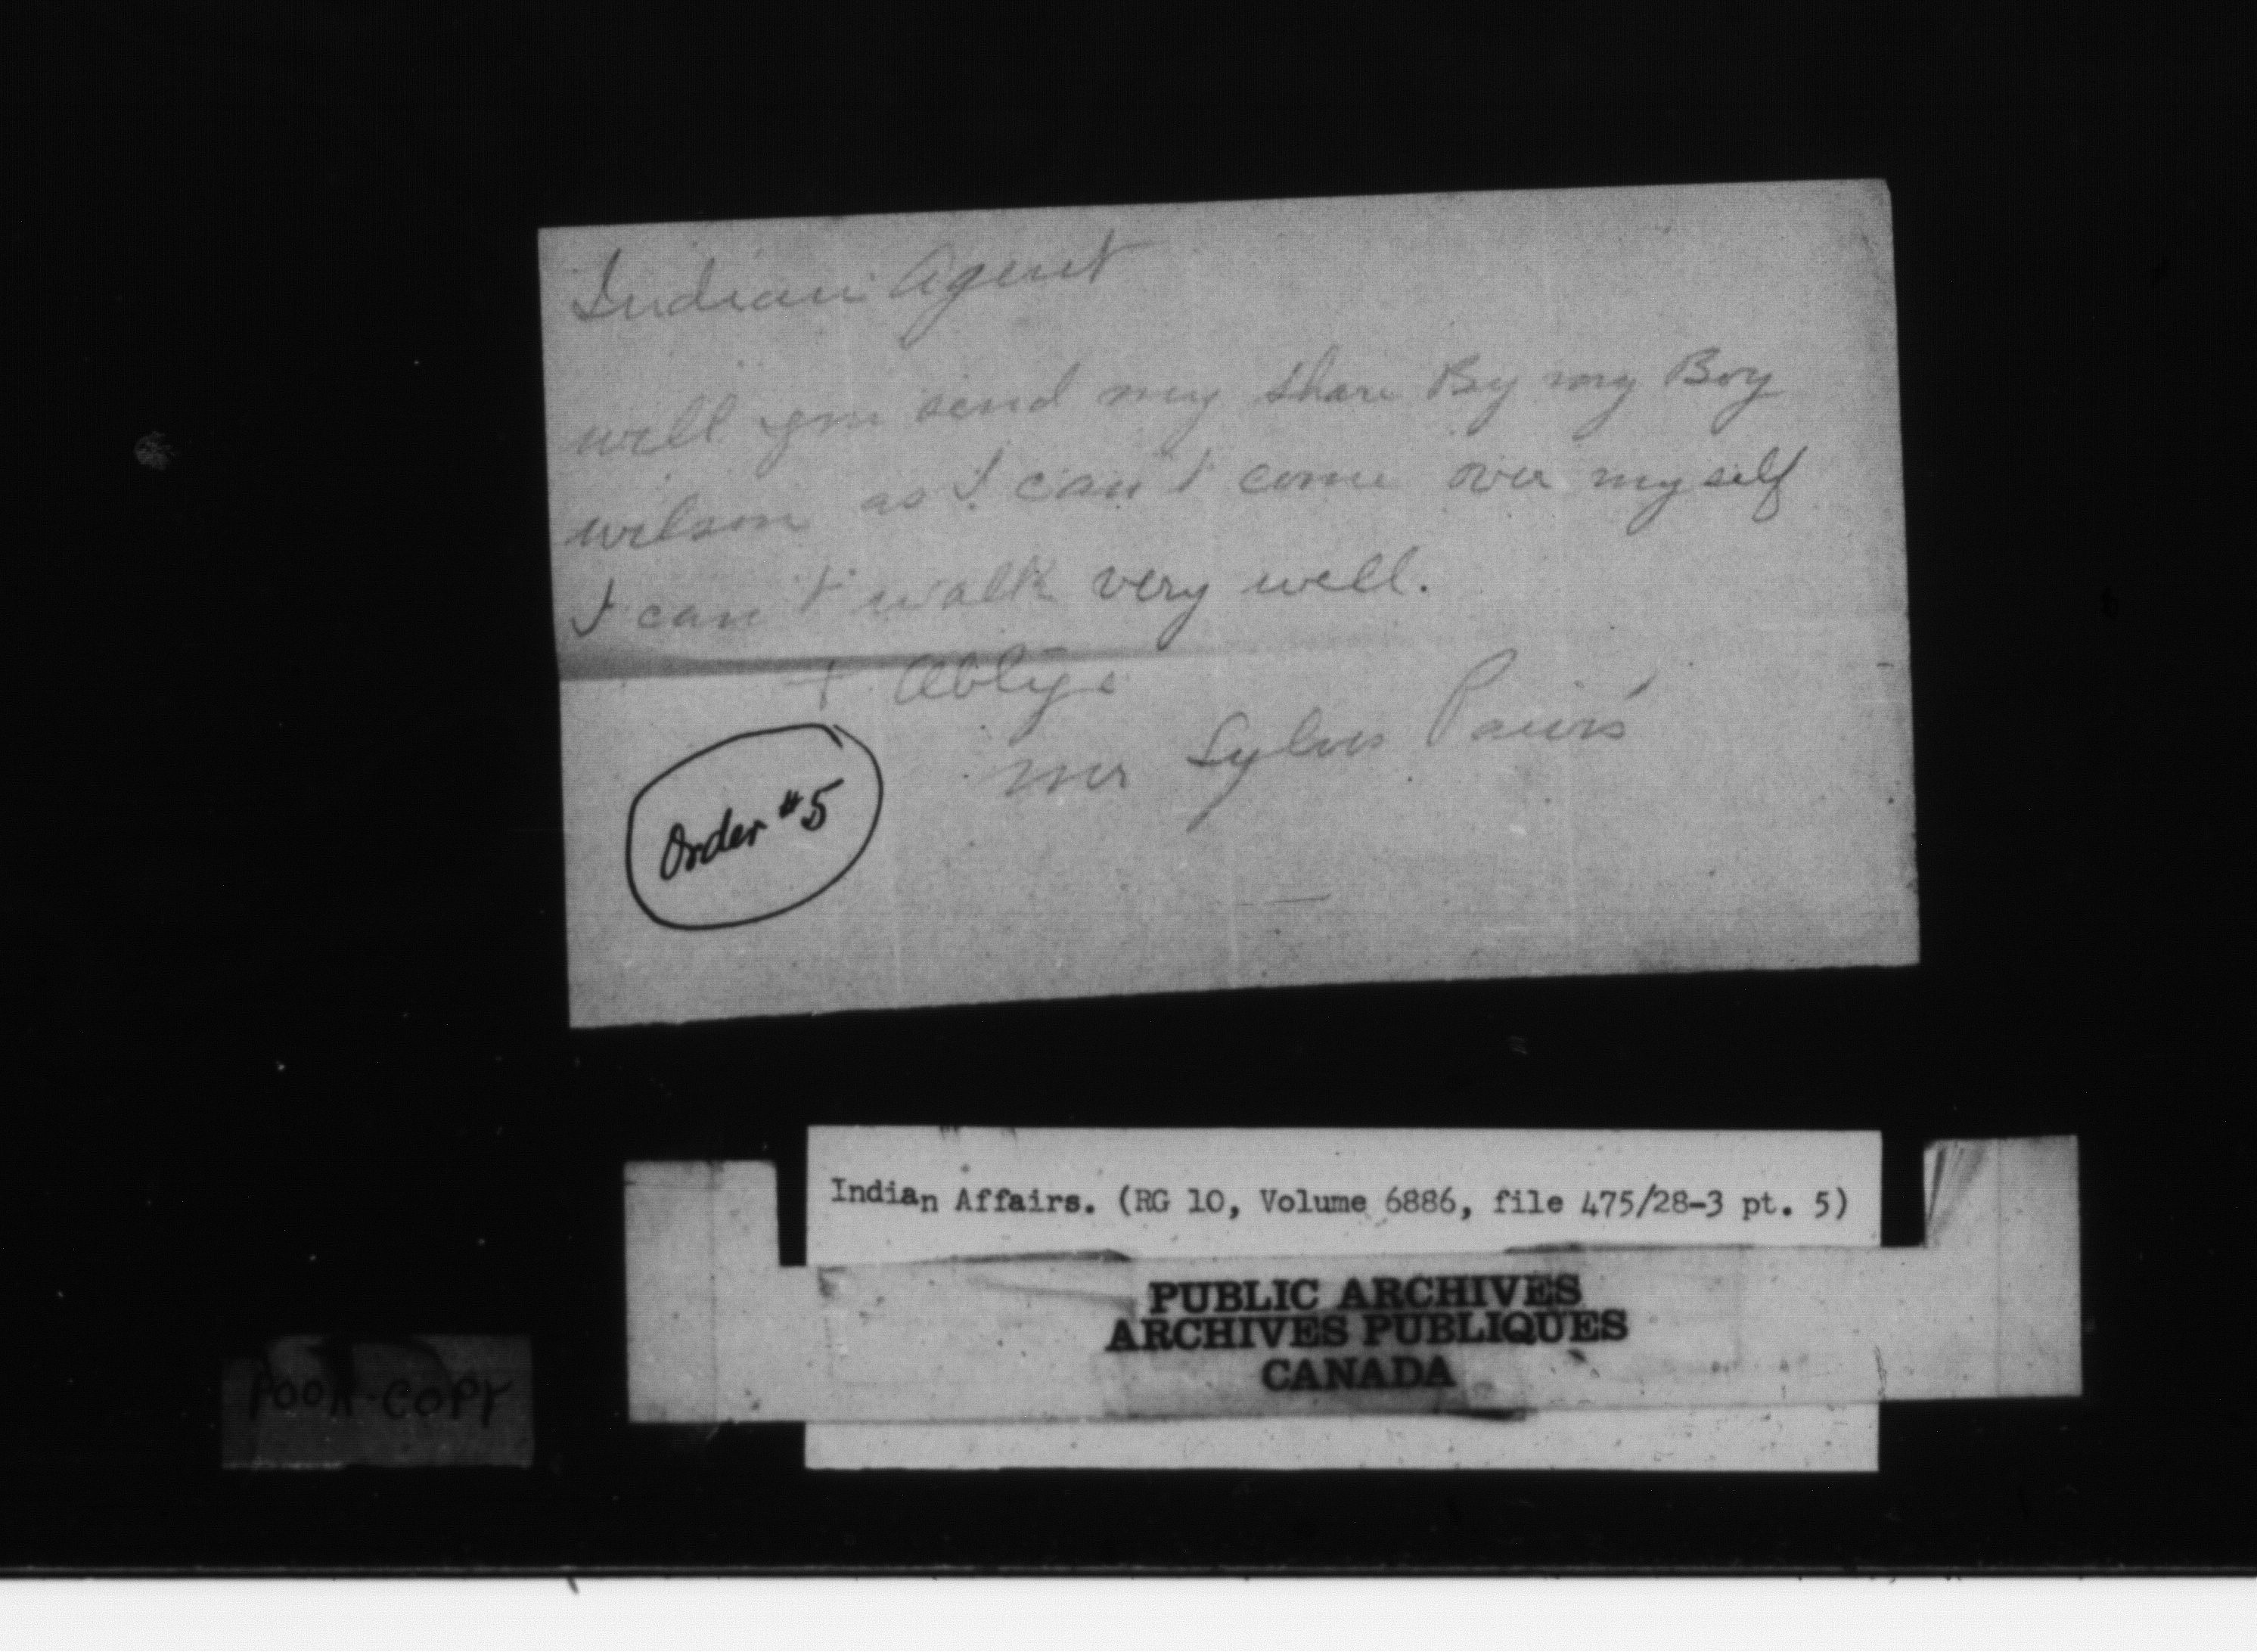 Indian Agent
will you send my share By my Boy
wilson as I can't come over myself
I can't walk very well.
+ Oblige
mr Sylves
Order #5
Indian Affairs. (RG 10, Volume 6886, file 475/28-3 pt. 5)
PUBLIC ARCHIVES
ARCHIVES PUBLIQUES
CANADA
POOR COPY